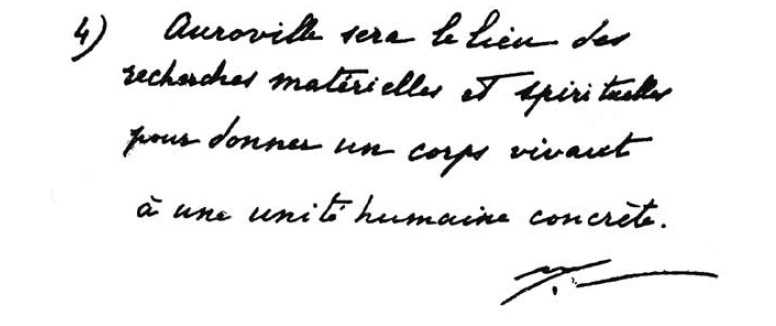 4) Auroville sera le lieu des
recherches matérielles et spirituelles
pour donner un corps vivant
à une unité humaine concrète.